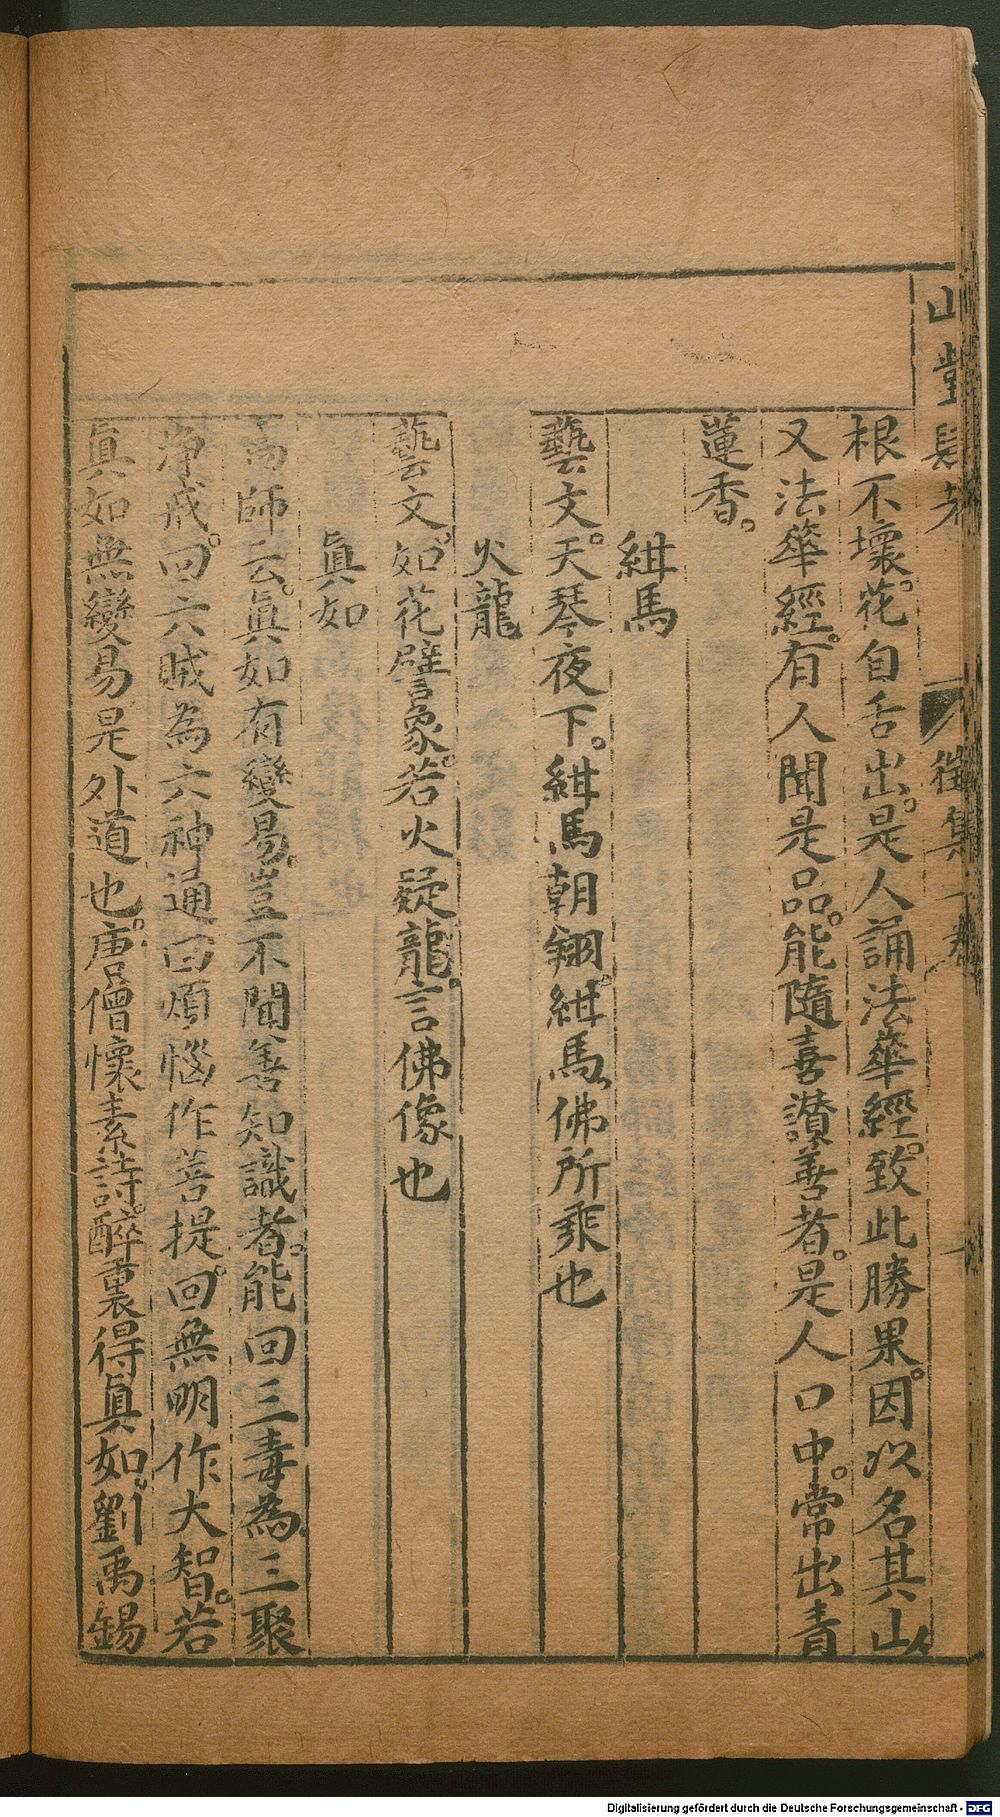 山堂肆考
徵集一卷
根不壞。花自舌出。是人誦法華經。致此勝果。因以名其山
又法華經。有人聞是品。能隨喜讃善者。是人口中。常出青
蓮香。
紺馬
藝文。天琴夜下。紺馬朝翔。紺馬、佛所乘也
火龍
藝文。如花譬象。若火疑龍。言佛像也
眞如
高師云。眞如有變易。豈不聞善知識者。能回三毒為三聚
淨戒。回六賊為六神通回煩惱作菩提。回無明作大智。若
眞如無變易是外道也。唐僧懷素詩。醉裏得眞如。劉禹錫
Digitalisierung gefördert durch die Deutsche Forschungsgemeinschaft - DFG